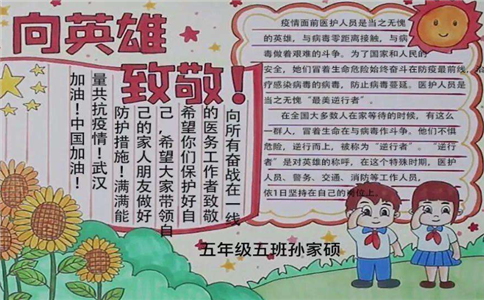 向英雄
致敬！
向所有奋战在一线
的医务工作者致敬
希望你们保护好自
己，希望大家带领自
己的家人朋友做好
防护措施！满满能
量共抗疫情！武汉
加油！中国加油！
疫情面前医护人员是当之无愧
的英雄，与病毒零距离接触，与病
毒做着艰难的斗争。为了国家和人民的
安全，她们冒着生命危险始终奋斗在防疫最前线，治
疗感染病毒的病人，防止病毒蔓延。医护人员是
当之无愧“最美逆行者”。
在全国大多数人在家等待的时候，有这么
一群人，冒着生命在与病毒作斗争。他们不惧
危险，逆行而上，被称为“逆行者”。“逆行
者”是对英雄的称呼，在这个特殊时期，医护
人员、警务、交通、消防等工作人员，
依1日坚持在自己的岗位上。
五年级五班孙家硕